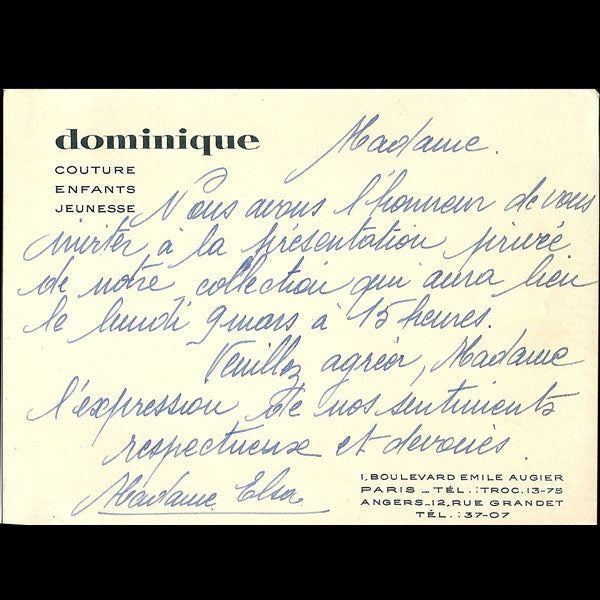 dominique
COUTURE
ENFANTS
JEUNESSE
Madame.
Nous avons l'honneur de vous
inviter à la présentation privée
de notre collection qui aura lieu
le lundi 9 mars à 15 heures.
Veuillez agréer, Madame
l'expression de nos sentiments
respectueux et devoués.
Madame Elsa
1, BOULEVARD EMILE AUGIER
PARIS _ TÉL. : TROC. 13-75
ANGERS_12, RUE GRANDET
TÉL. : 37-07